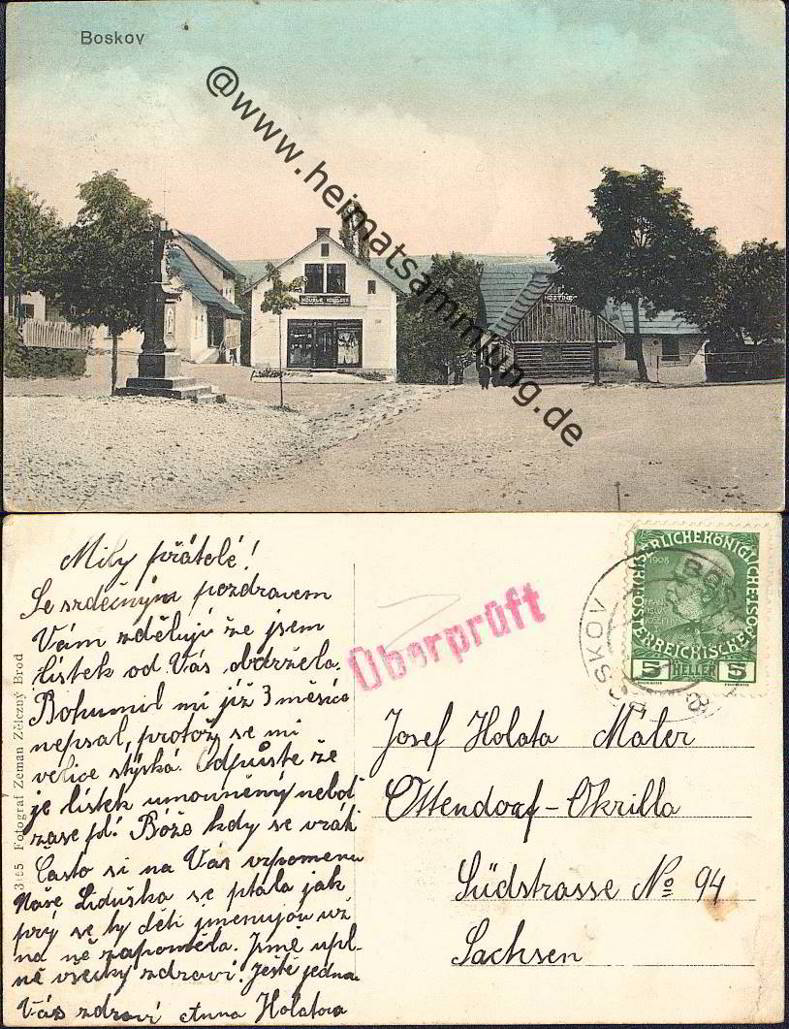 Boskov
@www.heimatsammlung.de
HOSTINEC
Milý přátelé!
Se srdečným pozdravem
Vám zděluji že jsem
lístek od Vás obdržela.
Bohumil mi již 3 měsíce
nepsal, protož se mi
velice stýská. Odpuste že
je lístek umouněný neboť
zase jde Bóže kdy se vrátí
Často si na Vás vzpomenu
Naše Liduška se ptala jak
prý se ty děti jmenujou už
na ně zapoměla. Jsmě upl-
ně vsecky zdraví. Ještě jedna
Vás zdraví Anna Holatova
3165 Fotograf Zeman Železný Brod
Überprüft
KAISERLICHEKÖNIGLICHE
ÖSTERREICHISCHEPOST
1908
5 HELLER 5
BOSKOV
Josef Holata Maler
Ottendorf-Okrilla
Südstrasse No 94
Sachsen